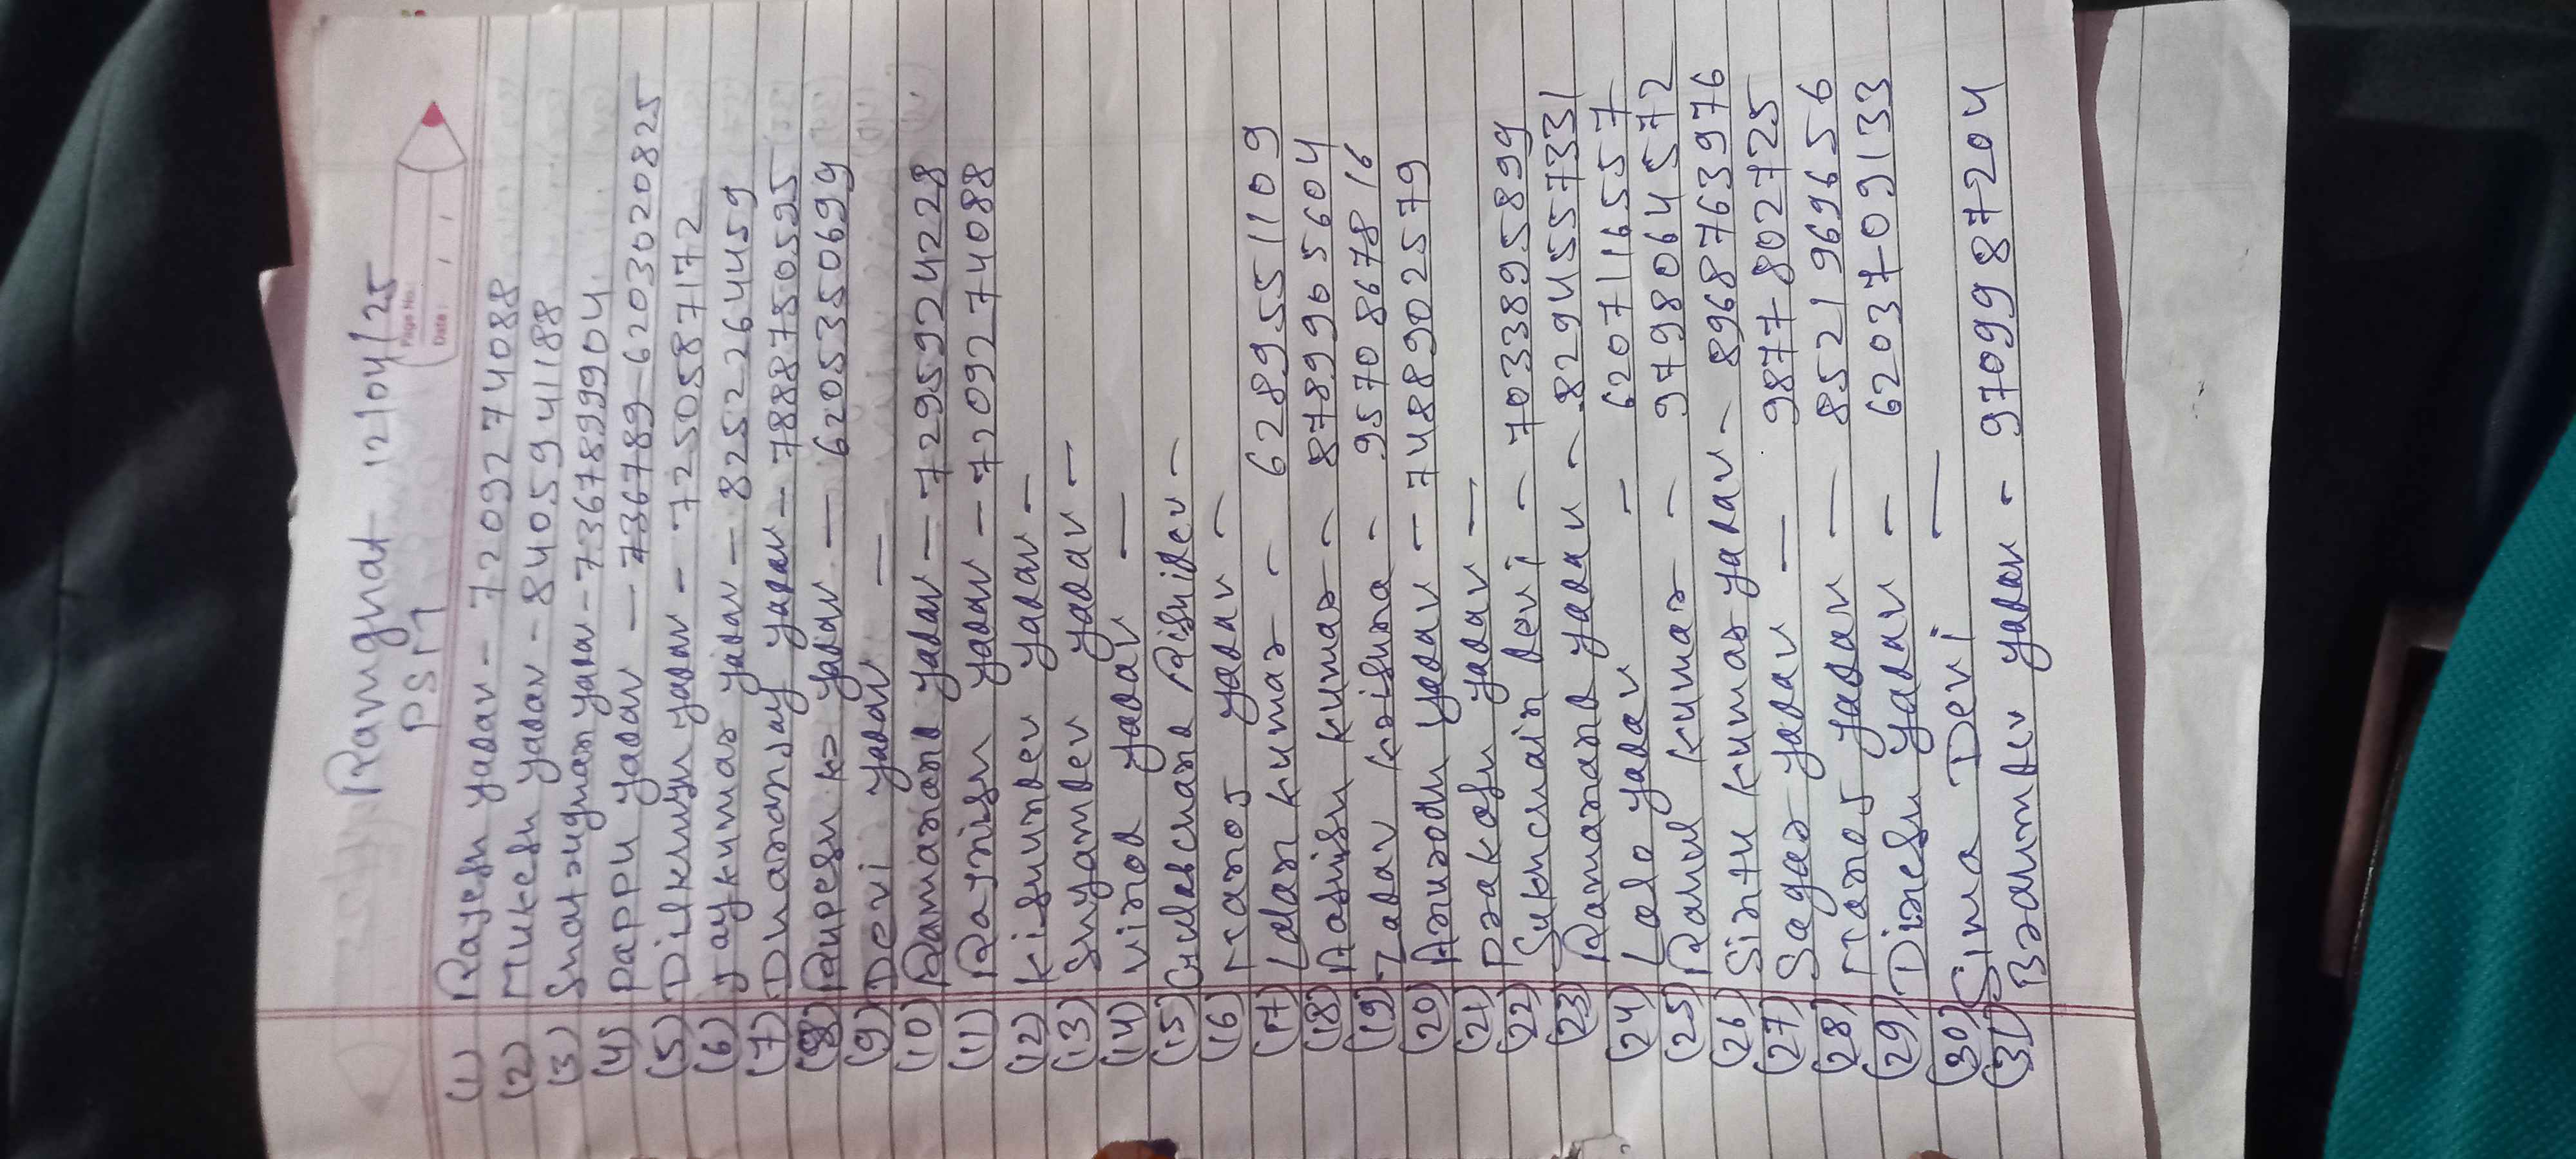 Ramghat - 12/04/25
PSM
Page No.:
Date: / /
(1) Rajesh yadav - 7209274088
(2) Mukesh yadav - 8405941188
(3) Shatrughan yadav - 7367899904
(4) Pappu yadav - 736789-6203020825
(5) Dilkhush yadav - 7250587172
(6) Jaykumar yadav - 8252264459
(7) Dhananjay yadav - 7888750595
(8) Rupesh kr yadav - 6205350699
(9) Devi yadav -
(10) Ramanand yadav - 7295924228
(11) Rajnish yadav - 7209274088
(12) Kishundev yadav -
(13) Shyamdev yadav -
(14) Vinod yadav -
(15) Gulabchand Rishidev -
(16) Manoj yadav -
(17) Ladan kumar - 6289551109
(18) Aashish kumar - 8789965604
(19) Lalav krishna - 9570867816
(20) Anurodh yadav - 7488902579
(21) Prakash yadav -
(22) Sukhchain Devi - 7033895899
(23) Ramanand yadav - 8294557331
(24) Lalo yadav - 6207116557
(25) Rahul kumar - 9798064572
(26) Sintu kumar yadav - 8968763976
(27) Sagar yadav - 9877802725
(28) Manoj yadav - 8521969656
(29) Dinesh yadav - 6203709133
(30) Sima Devi -
(31) Bramhdev yadav - 9709987204